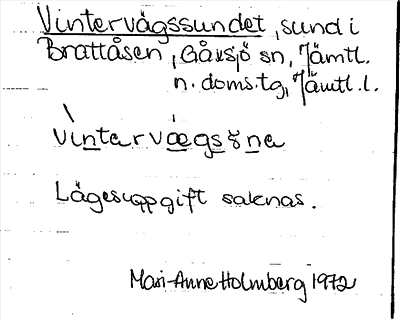 Vintervägssundet, sund i
Brattåsen, Gåxsjö sn, Jämtl.
n. doms.tg, Jämtl. l.
vìntarvæ̀gsɤna
Lägesuppgift saknas.
Mari-Anne Holmberg 1972